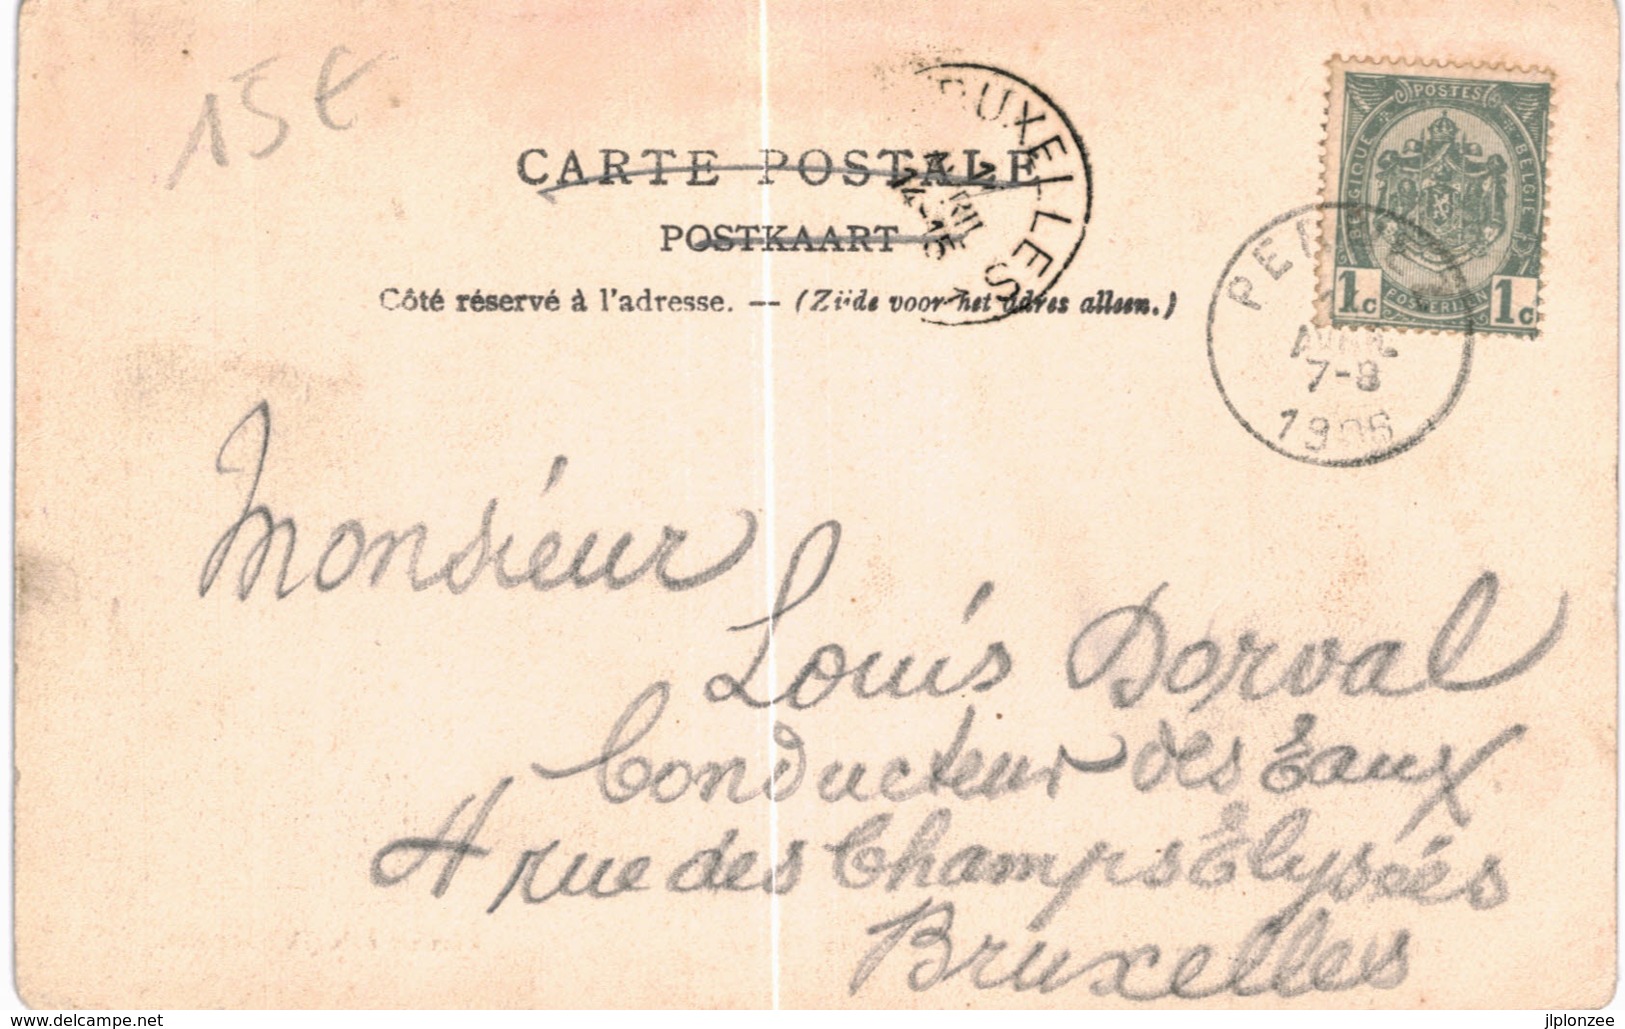 15€
CARTE POSTALE
POSTKAART
Côté réservé à l'adresse. — (Zijde voor het adres alleen.)
RUXELLES
AVRIL
POSTES
BELGIQUE BELGIE
POSTERIJEN
1c 1c
AVRIL
7-8
1906
Monsieur
Louis Dorval
Conducteur des Eaux
4 rue des Champs Elysées
Bruxelles
www.delcampe.net
jlplonzee